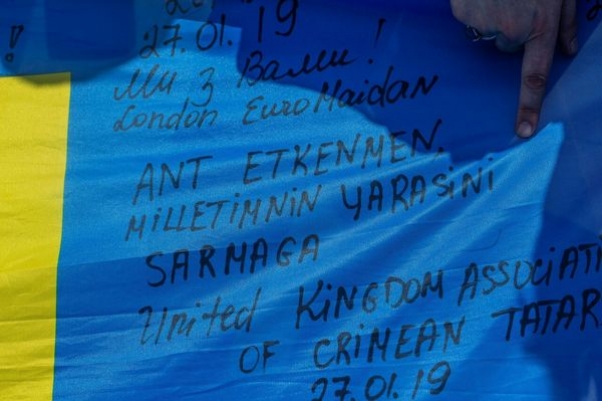 !
19
27.01.
Ми з Вами!
London EuroMaidan
ANT ETKENMEN,
MILLETIMNIN YARASINI
SARMAGA
United KINGDOM ASSOCIATI
OF CRIMEAN TATAR
27.01.19